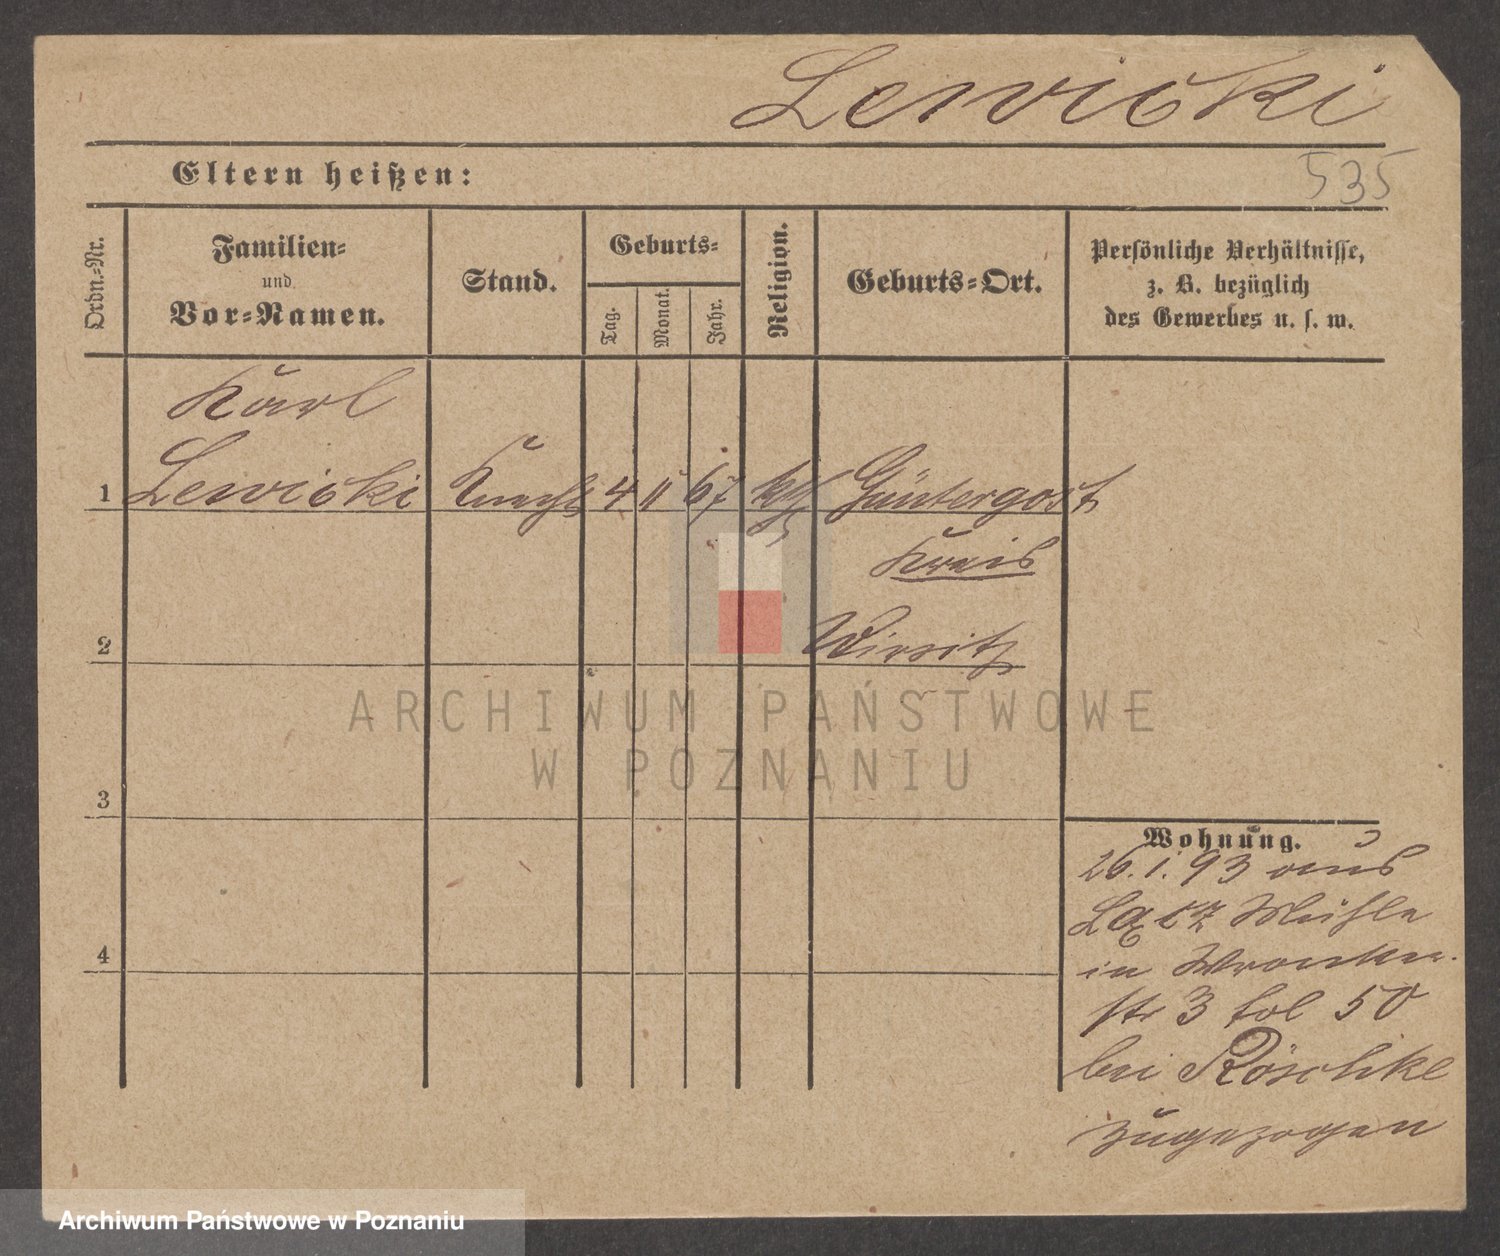 Lewicki
Eltern heißen:
535
Ordn.-Nr.
Familien-
und
Vor-Namen.
Stand.
Geburts-
Tag.
Monat.
Jahr.
Religion.
Geburts-Ort.
Persönliche Verhältnisse,
z. B. bezüglich
des Gewerbes u. s. w.
Karl
1 Lewicki Knecht 4 11 67 kth Güntergost
Kreis
2 Wirsitz
ARCHIWUM PAŃSTWOWE
W POZNANIU
3
Wohnung.
26.1.93 aus
Mühle
in Wronker-
4
str 3 fol 50
bei Röschke
zugezogen
Archiwum Państwowe w Poznaniu